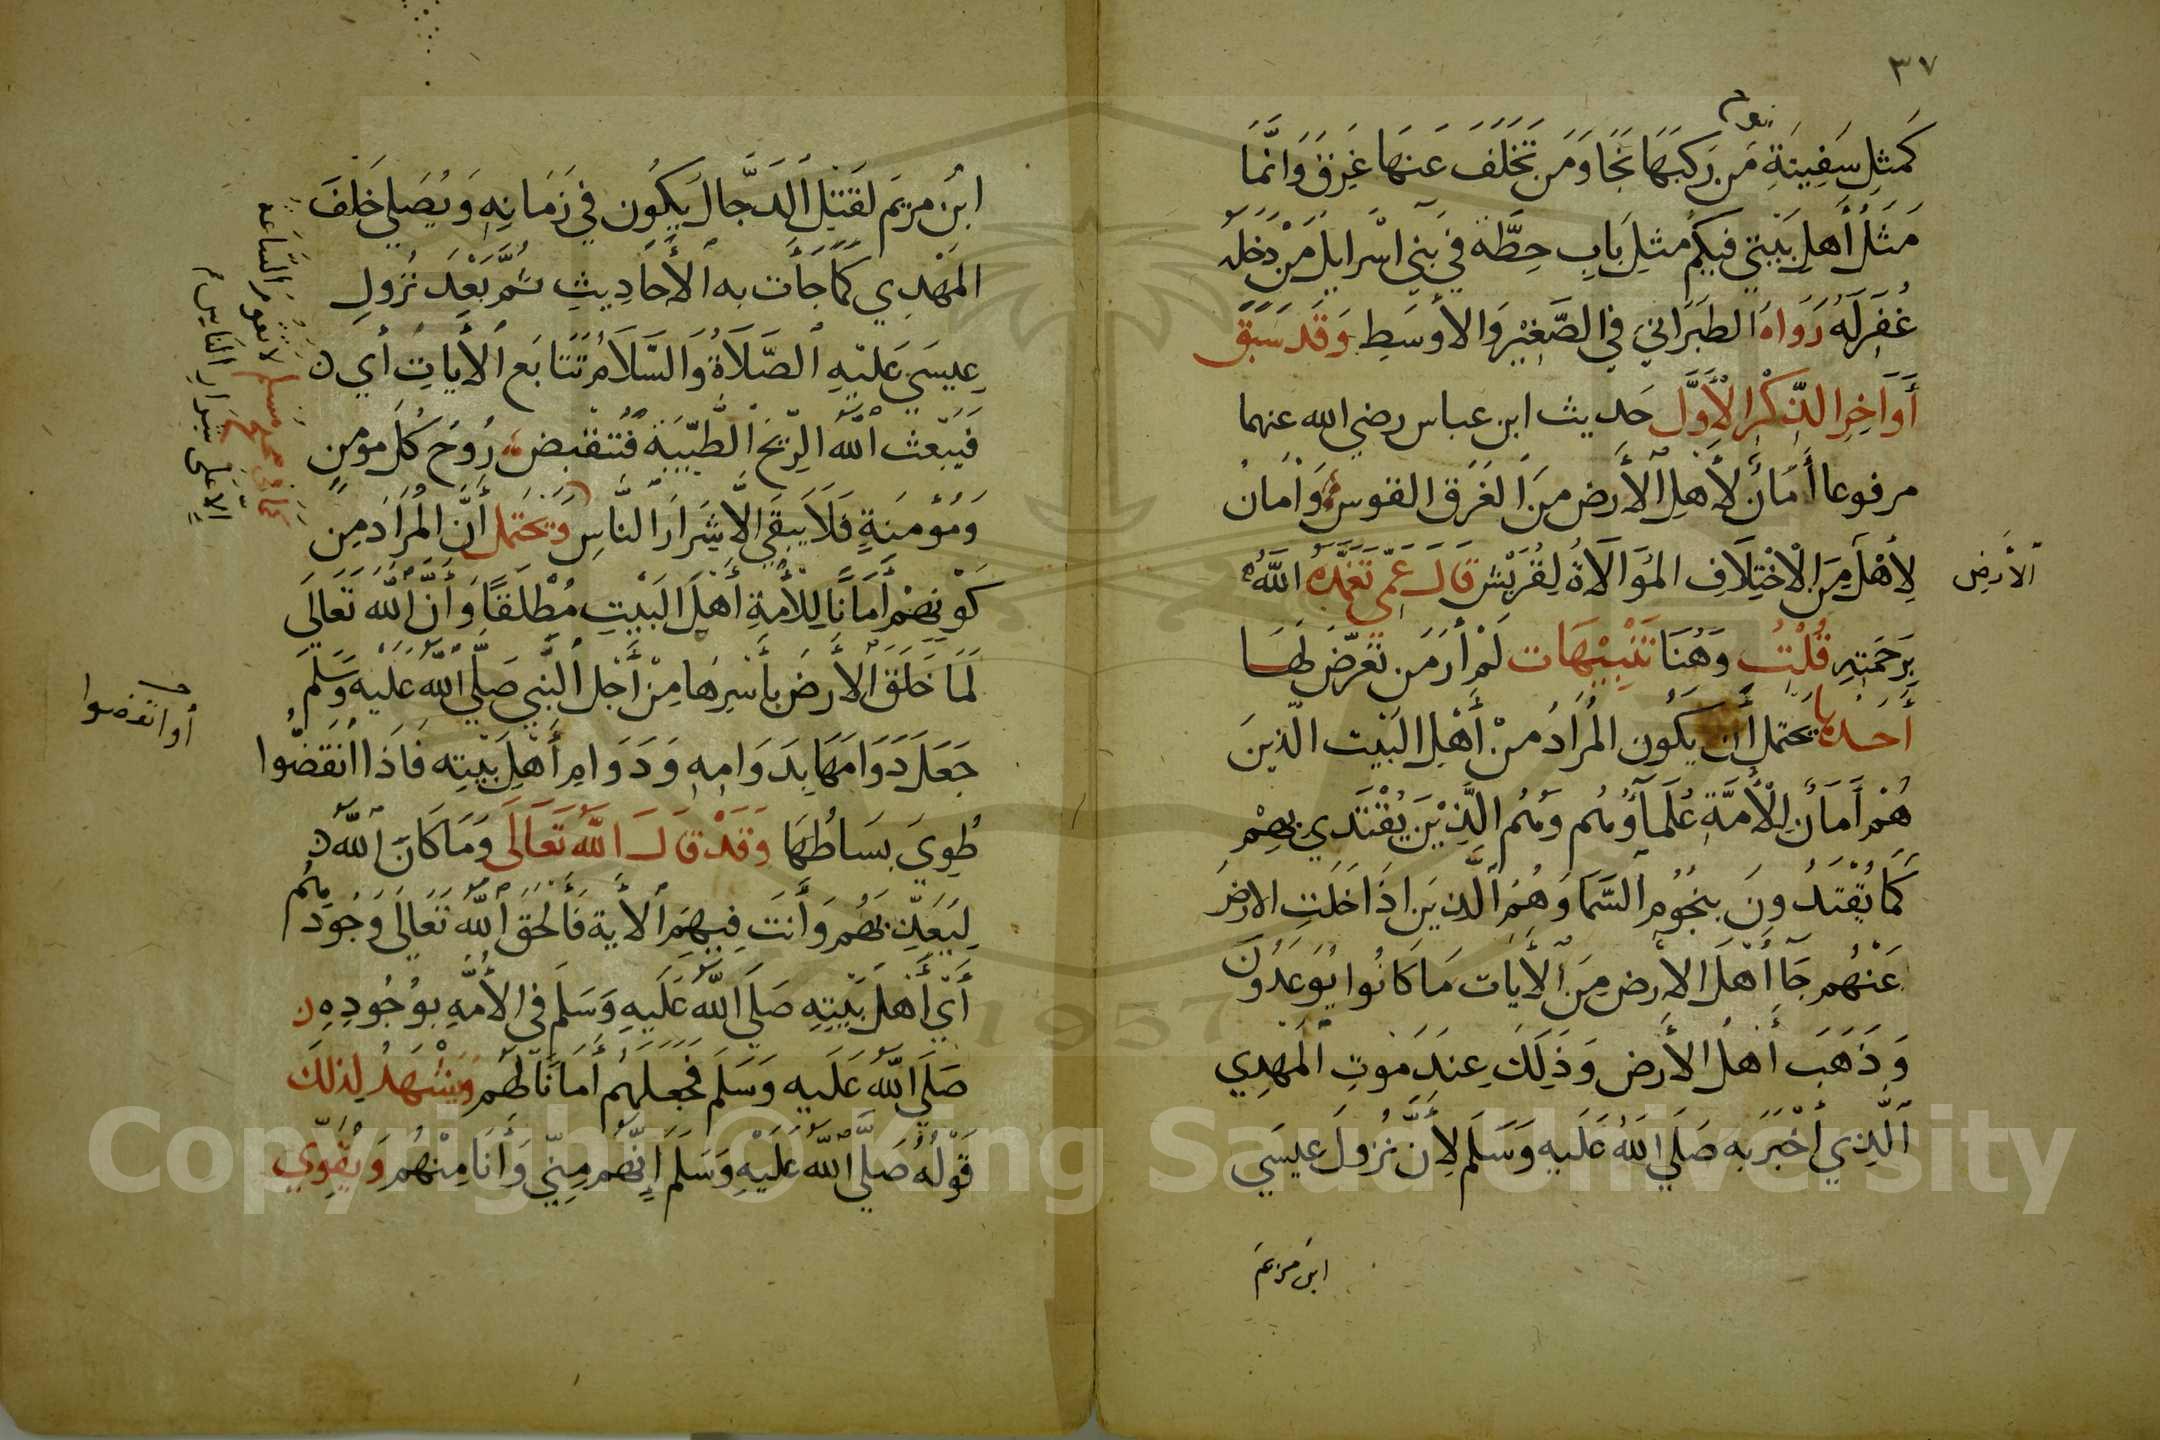 ٣٧
نوح
كَمَثِلِ سَفِينَةِ مَن رَكبَهَا نَجَا وَمَن تَخَلَفَ عَنهَا غَرِقَ وَانَّمَا
مَثَلُ أَهلِ بَيْتي فيكُم مثِل بَابِ حِطَّة في بَنِي اسْرَايِلَ مَنْ دَخلَه
غُفِرَ لَهُ رَوَاهَ الطبَرَانيَ في الصَّغِيْر وَالأوسَطِ وَقَد سَبَقَ
أَوَاخِرِ الذِّكْرِ الأَوَّل حَديث ابن عباس رضي الله عنهما
مرفوعا أَمَانٌ لأَهلِ الأَرض مِنَ الغَرَق القوسُ وَأَمَانُ
لِأهْلَ مِنَ الِاخْتِلَافِ المُوَالَاةُ لِقُرَيْش قَالَ عَمّي تَغَمَّدَهُ اللَّهُ
الأَرضِ
بِرَحمَتِهِ قُلْتُ وَهُنَا تَنْبِيْهَات لَمْ أَرَ مَن تَعَرّضَ لَهَا
أَحَدُها يحتَمل أَن يَكُون المُرَادُ منْ أَهْلِ البَيْت الّذينَ
هُمْ أَمَانُ الْأُمَّةِ عُلَمَآؤُهُم وَهُم الَّذِيْنَ يُقْتَدي بِهِمْ
كَمَا يُقْتَدُونَ بِنجُوُمِ السَّمَا وَهُمُ الَّذِينَ اذَا خَلَتِ الارضُ
عَنْهُم جَآ أَهْلَ الارض مِنَ الأَيَات مَا كَانُوا يُوعَدُونَ
وَذَهَبَ أَهلُ الأَرض وَذَلِكَ عِندَ مَوتِ المَهدِي
الَّذِي أَخْبَرَ به صَلَي اللهُ عَلَيهِ وَسَلَم لأَنَّ نُزُولَ عِيسَي
ابن مريَم
ابنُ مريَم لقَتِل الدَجَّال يَكُون في زَمَانِهِ وَيُصَلي خَلفَ
المَهْدِي كَمَا جَأَت به الأَحَادِيثِ ثُمَّ بَعْدَ نُزُولِ
عِيسَيَ عَلَيْهِ الصَّلَاةُ وَالسَّلَامُ تَتَابَع الأَيَاتِ أَي
فَيَبْعث اللهُ الرِّيحَ الطَّيّبَةَ فَتُقبَض رُوَحُ كُلَ مومِنٍ
وَمُؤمنَةٍ فَلَا يَبقَي الَّا شِرَارَ النَّاسِ وَيحتَمَل أَنَّ المُرَادَ مِن
كَوْنِهِمْ أَمَانًا لِلأُمةِ أَهلَ البَيْتِ مُطْلَقًا وَأَنَّ اللهَ تَعَالَي
لَمَا خَلَقَ الأَرضَ بأَسِرهَا مِنْ أَجْل النَّبي صَلَّي اللهُ عَلَيْهِ وَسَلَّمَ
جَعَلَ دَوَامَهَا بِدَوَامِهِ وَدَوَامِ أَهْلِ بَيْتِه فَاذَا انْقَضُوا
أو انقرضوا
طُوِيَ بسَاطُهَا وَقَدْ قَالَ اللهُ تَعَالَى وَمَا كَانَ اللهُ
لِيُعَذِّبَهُم وَأَنتَ فِيهِم الأَيةَ فَأَلحَقَ اللهُ تَعَالَى وُجُودَهُم
أَيّ أَهْلَ بَيْتِهِ صَلَي اللهُ عَلَيهِ وَسَلَم في الأُمَّهِ بوُجُودِهِ
صَلَي اللهُ عَلَيهِ وَسَلَم فَجَعَلَهُم أَمَانًا لَهُم وَيَشْهَدُ لذلكَ
قَوْلُهُ صَلَّي اللهُ عَلَيْهِ وَسَلَم اِنَّهُم مِنّي وَأَنَا مِنْهُم وَيُقَوِّي
لا تقوم السَّاعَة
الَّا عَلَى شِرَارِ النَّاسِ
Copyright © King Saud University
1957